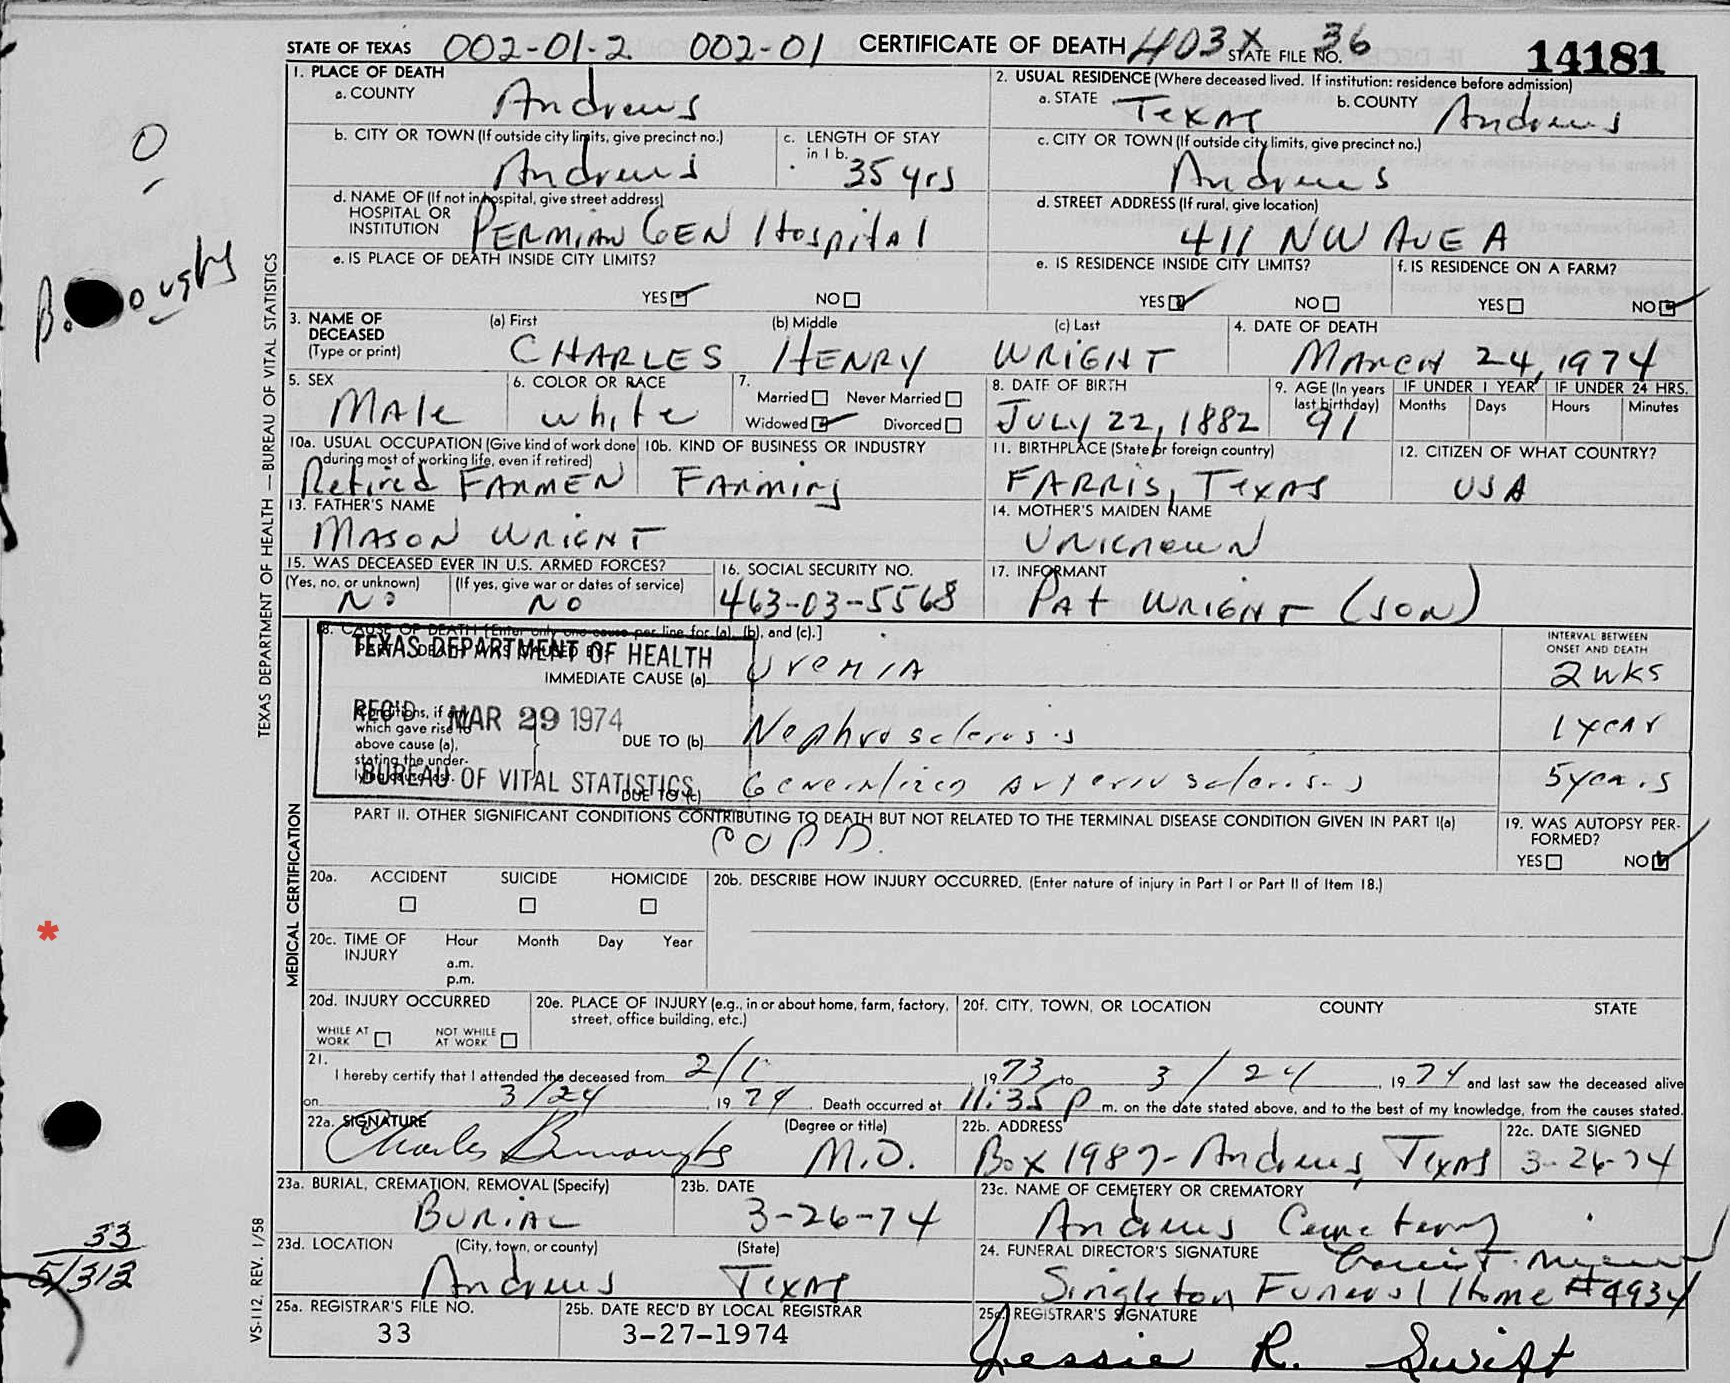 STATE OF TEXAS 002-01-2 002-01 CERTIFICATE OF DEATH 403X STATE FILE NO. 36 14181
1. PLACE OF DEATH
a. COUNTY Andrews
2. USUAL RESIDENCE (Where deceased lived. If institution: residence before admission)
a. STATE Texas b. COUNTY Andrews
b. CITY OR TOWN (If outside city limits, give precinct no.) Andrews
c. LENGTH OF STAY in 1 b. 35 yrs
c. CITY OR TOWN (If outside city limits, give precinct no.) Andrews
d. NAME OF (If not in hospital, give street address)
HOSPITAL OR
INSTITUTION PERMIAN GEN Hospital
d. STREET ADDRESS (If rural, give location)
411 NW AVE A
e. IS PLACE OF DEATH INSIDE CITY LIMITS?
YES NO
e. IS RESIDENCE INSIDE CITY LIMITS?
YES NO
f. IS RESIDENCE ON A FARM?
YES NO
Boughs
3. NAME OF DECEASED (Type or print)
(a) First (b) Middle (c) Last
CHARLES HENRY WRIGHT
4. DATE OF DEATH
MARCH 24, 1974
5. SEX
Male
6. COLOR OR RACE
white
7. Married Never Married
Widowed Divorced
8. DATE OF BIRTH
JULY 22, 1882
9. AGE (In years last birthday)
91
IF UNDER 1 YEAR IF UNDER 24 HRS.
Months Days Hours Minutes
10a. USUAL OCCUPATION (Give kind of work done
during most of working life, even if retired)
Retired FARMER
10b. KIND OF BUSINESS OR INDUSTRY
Farming
11. BIRTHPLACE (State or foreign country)
FARRIS, TEXAS
12. CITIZEN OF WHAT COUNTRY?
USA
13. FATHER'S NAME
MASON WRIGHT
14. MOTHER'S MAIDEN NAME
UNKNOWN
15. WAS DECEASED EVER IN U.S. ARMED FORCES?
(Yes, no, or unknown) (If yes, give war or dates of service)
No No
16. SOCIAL SECURITY NO.
463-03-5568
17. INFORMANT
PAT WRIGHT (SON)
18. CAUSE OF DEATH [Enter only one cause per line for (a), (b), and (c).]
INTERVAL BETWEEN
ONSET AND DEATH
TEXAS DEPARTMENT OF HEALTH
IMMEDIATE CAUSE (a) UREMIA 2 wks
REC'D MAR 29 1974
Conditions, if any
which gave rise to
above cause (a),
stating the under-
lying cause last.
DUE TO (b) Nephrosclerosis 1 year
BUREAU OF VITAL STATISTICS
DUE TO (c) Generalized Arteriosclerosis 5 years
PART II. OTHER SIGNIFICANT CONDITIONS CONTRIBUTING TO DEATH BUT NOT RELATED TO THE TERMINAL DISEASE CONDITION GIVEN IN PART I(a)
COPD.
19. WAS AUTOPSY PER-
FORMED?
YES NO
20a. ACCIDENT SUICIDE HOMICIDE
20b. DESCRIBE HOW INJURY OCCURRED. (Enter nature of injury in Part I or Part II of Item 18.)
*
20c. TIME OF INJURY
Hour Month Day Year
a.m.
p.m.
20d. INJURY OCCURRED
WHILE AT WORK NOT WHILE AT WORK
20e. PLACE OF INJURY (e.g., in or about home, farm, factory,
street, office building, etc.)
20f. CITY, TOWN, OR LOCATION COUNTY STATE
21.
I hereby certify that I attended the deceased from 2/1 1973 to 3/24, 1974 and last saw the deceased alive
on 3/24, 1974. Death occurred at 11:35 P m. on the date stated above, and to the best of my knowledge, from the causes stated.
22a. SIGNATURE (Degree or title)
Charles Burroughs M.D.
22b. ADDRESS
Box 1987- Andrews, Texas
22c. DATE SIGNED
3-26-74
23a. BURIAL, CREMATION, REMOVAL (Specify)
BURIAL
23b. DATE
3-26-74
23c. NAME OF CEMETERY OR CREMATORY
Andrews Cemetery
23d. LOCATION (City, town, or county) (State)
Andrews Texas
24. FUNERAL DIRECTOR'S SIGNATURE
Singleton Funeral Home #4934
25a. REGISTRAR'S FILE NO.
33
25b. DATE REC'D BY LOCAL REGISTRAR
3-27-1974
25c. REGISTRAR'S SIGNATURE
Jessie R. Swift
33
5/313
TEXAS DEPARTMENT OF HEALTH — BUREAU OF VITAL STATISTICS
MEDICAL CERTIFICATION
VS-112, REV. 1/58